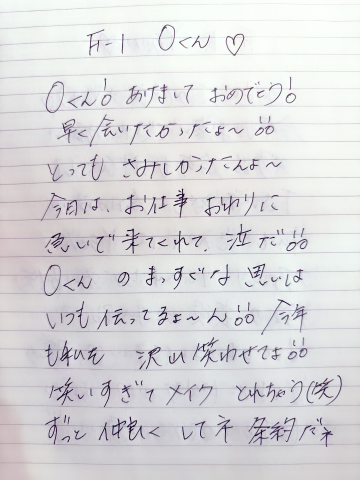 F-1 Oくん♡
Oくん!! あけまして おめでとう!
早く会いたかったよ〜!!
とっても さみしかったんよ〜
今日は、お仕事 おわりに
急いで来てくれて、泣だ!!
Oくん のまっすぐな 思いは
いつも 伝ってるよ〜ん!! 今年
も私を 沢山笑わせてよ!!
笑いすぎて メイク とれちゃう(笑)
ずっと 仲良く してネ 条約だネ